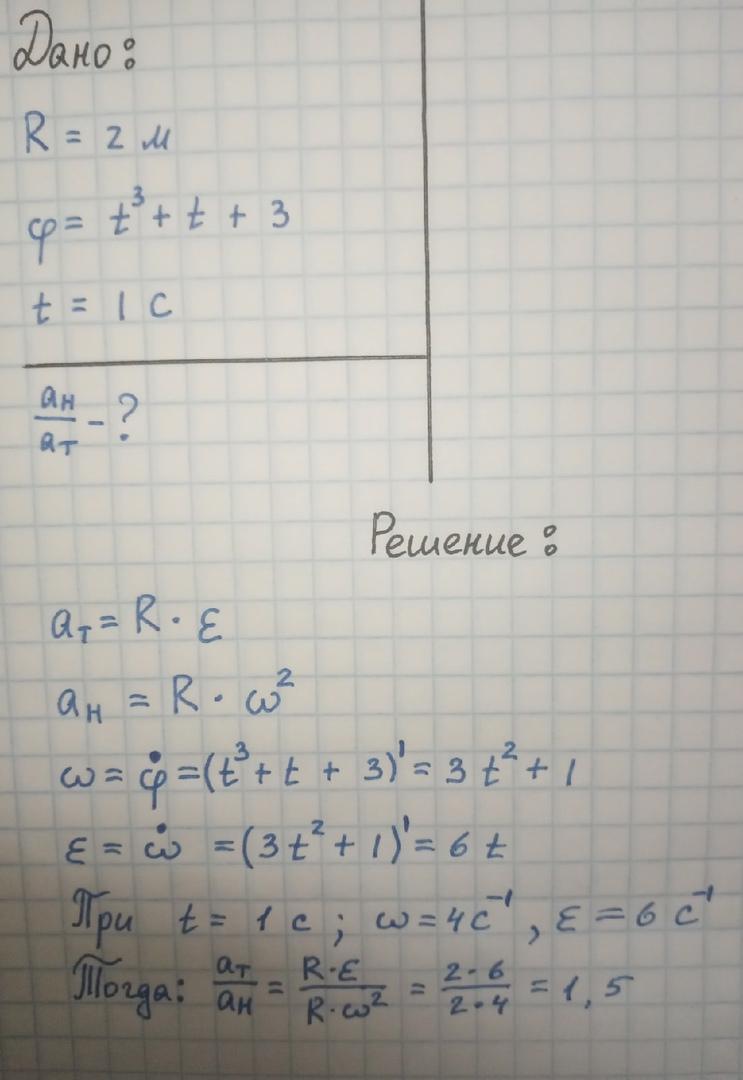 Дано:
R = 2 м
φ = t³ + t + 3
t = 1 с
aн/aт - ?
Решение:
aт = R · ε
aн = R · ω²
ω = φ̇ = (t³ + t + 3)' = 3 t² + 1
ε = ω̇ = (3t² + 1)' = 6 t
При t = 1 с ; ω = 4с⁻¹ , ε = 6 с⁻¹
Тогда: aт/aн = R·ε/R·ω² = 2·6/2·4 = 1,5